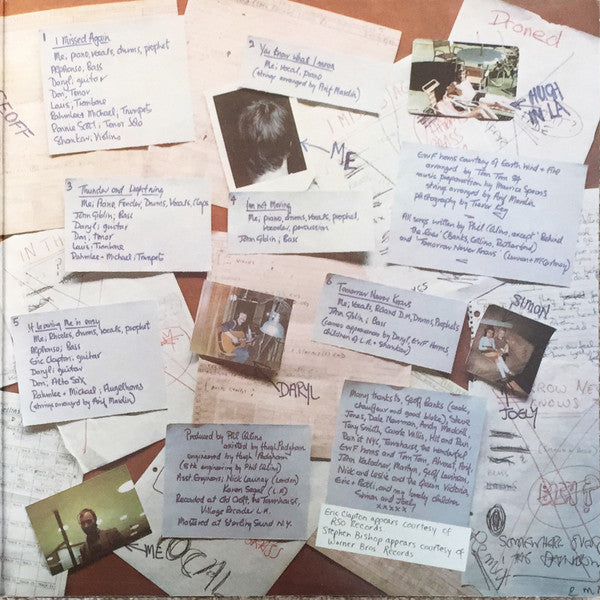 1 I Missed Again
Me, piano, vocals, drums, prophet
Alphonso; Bass
Daryl; guitar
Don; Tenor
Louis; Trombone
Rahmlee + Michael; Trumpets
Ronnie Scott; Tenor Solo
Shankar; Violins
2 You Know What I mean
Me; Vocal, piano
(strings arranged by Arif Mardin)
Droned
GEOFF
ME
HUGH
IN LA
EWF horns courtesy of Earth, Wind + Fire
arranged by Tom Tom 84
music preparation by Maurice Spears
string arranged by Arif Mardin
photography by Trevor Key
All songs written by Phil Collins, except 'Behind
the Lines' (Banks, Collins, Rutherford)
and 'Tomorrow Never Knows' (Lennon-McCartney)
3 Thunder and Lightning
Me; Piano, Fender, Drums, Vocals, Claps
John Giblin; Bass
Daryl; guitar
Don; tenor
Louis; Trombone
Rahmlee + Michael; Trumpets
4 I'm not Moving
Me; piano, drums, vocals, prophet,
vocoder, percussion
John Giblin; Bass
IN TH
5 If leaving Me is easy
Me; Rhodes, drums, vocals, prophet
Alphonso; Bass
Eric Clapton; guitar
Daryl; guitar
Don; Alto Sax
Rahmlee + Michael; Flugelhorns
(strings arranged by Arif Mardin)
6 Tomorrow Never Knows
Me; Vocals, Roland D.M, Drums, Prophets
John Giblin; Bass
(cameo appearances by Daryl, EWF Horns,
children of L.A. + Shankar)
SIMON
JOELY
DARYL
Produced by Phil Collins
assisted by Hugh Padgham
engineered by Hugh Padgham
(8 trk engineering by Phil Collins)
Asst Engineers; Nick Launay (London)
Karen Siegel (L.A)
Recorded at Old Croft, the Townhouse,
Village Recorder L.A.
Mastered at Sterling Sound N.Y.
Many thanks to; Geoff Banks (cook,
chauffeur and good bloke), Steve
Jones, Dale Newman, Andy Mackrill,
Tony Smith, Carole Willis, Hit and Run,
Pain in NYC, Townhouse, the wonderful
EWF horns and Tom Tom, Ahmet, Arif,
John Kalodner, Martyn, Geoff, Lamham,
Nick and Leslie and the Queen Victoria,
Eric + Patti, and my lovely children
Simon and Joely
xxxxx
Eric Clapton appears courtesy of
RSO Records
Stephen Bishop appears courtesy of
Warner Bros. Records
ROW NE
KNOWS
ME
SOMEWHERE OVER